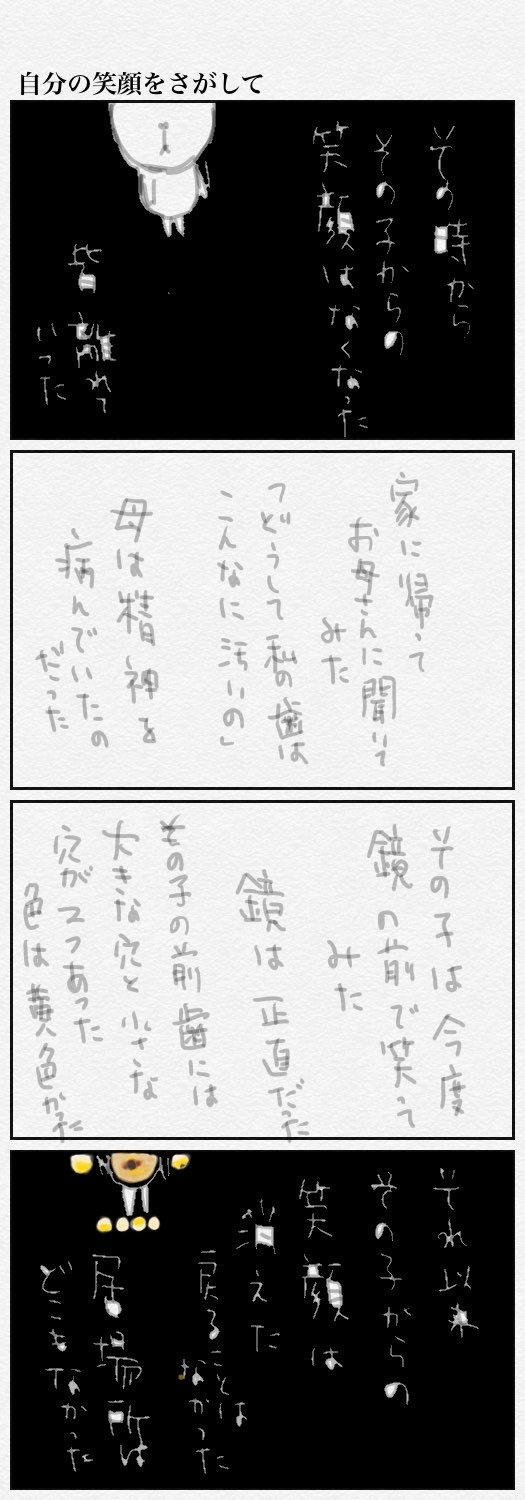 自分の笑顔をさがして
その時から
その子からの
笑顔はなくなった
皆離れて
いった
家に帰って
お母さんに聞いて
みた
「どうして私の歯は
こんなに汚いの」
母は精神を
病んでいたの
だった
その子は今度
鏡の前で笑って
みた
鏡は正直だった
その子の前歯には
大きな穴と小さな
穴が2つあった
色は黄色かった
それ以来
その子からの
笑顔は
消えた
戻ることは
なかった
居場所は
どこもなかった